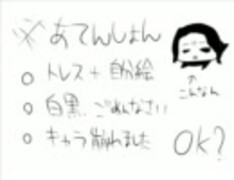 ※あてんしょん
○ トレス + 自分絵
○ 白黒 ごめんなさい
○ キャラ崩れました
↑
こんなん
OK?